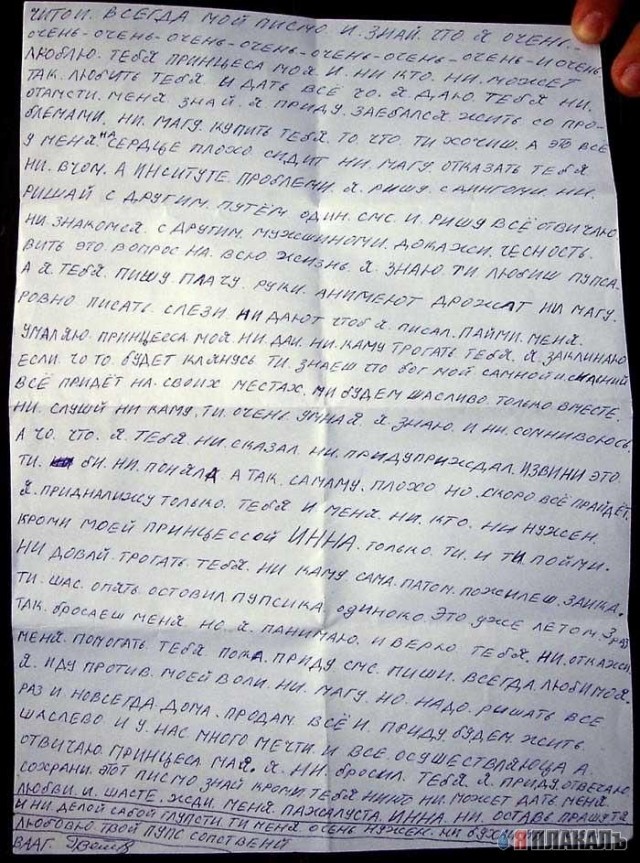 ЧИТОЙ. ВСЕГДА. МОЙ ПИСМО. И. ЗНАЙ. ЧТО. Я ОЧЕНГ.-
ОЧЕНЬ-ОЧЕНЬ-ОЧЕНЬ-ОЧЕНЬ-ОЧЕНЬ-ОЧЕНЬ-ОЧЕНЬ-И ОЧЕНЬ
ЛЮБЛЮ. ТЕБЯ ПРИНЦЕСА МОЯ. И. НИ КТО. НИ. МОЖЕТ
ТАК. ЛЮБИТЬ ТЕБЯ И ДАТЬ ВСЁ ЧО. Я. ДАЮ. ТЕБЯ НИ.
ОТАМСТИ. МЕНЯ. ЗНАЙ. Я. ПРИДУ. ЗАЕБАЛСЯ ЖИТЬ СО ПРО-
БЛЕМАМИ. НИ. МАГУ. КУПИТЬ ТЕБЯ. ТО ЧТО. ТИ ХОЧИШ. А ЭТО ВСЁ
У МЕНЯ НА СЕРДЦЕ ПЛОХО СИДИТ НИ. МАГУ. ОТКАЗАТЬ ТЕБЯ
НИ. ВЧОМ. А ИНСИТУТЕ. ПРОБЛЕМИ. Я. РИШУ. С НИ.
РИШАЙ С ДРУГИМ. ПУТЁМ ОДИН. СМС. И. РИШУ ВСЁ ОТВИЧАЮ.
НИ. ЗНАКОМСЯ. С ДРУГИМ. МУЖШИНОМИ. ДОКАЖИ. ЧЕСНОСТЬ.
ВИТЬ ЭТО. ВОПРОС НА. ВСЮ ЖИЗНЬ. Я. ЗНАЮ. ТИ ЛЮБИШ ПУПСА.
А Я ТЕБЯ. ПИШУ. ПЛАЧУ. РУКИ. АНИМЕЮТ ДРОЖАТ НИ МАГУ.
РОВНО ПИСАТЬ СЛЕЗИ. НИ ДАЮТ ЧТОБ Я. ПИСАЛ. ПАЙМИ. МЕНЯ.
УМАЛЯЮ. ПРИНЦЕССА МОЯ. НИ. ДАИ. НИ. КАМУ ТРОГАТЬ ТЕБЯ. Я. ЗАКЛИНАЮ
ЕСЛИ. ЧО ТО БУДЕТ КЛЯНУСЬ ТИ. ЗНАЕШ ЧТО БОГ МОЙ САМНОЙ И.
ВСЁ ПРИДЁТ НА. СВОИХ МЕСТАХ. МИ БУДЕМ ШАСЛИВО. ТОЛЬКО ВМЕСТЕ.
НИ. СЛУШЙ НИ КАМУ. ТИ. ОЧЕНГ. УМНАЯ Я. ЗНАЮ. И НИ. СОМНИВОЮСЬ.
А ЧО. ЧТО. Я. ТЕБЯ. НИ. СКАЗАЛ. НИ. ПРИДУПРИЖДАЛ. ИЗВИНИ ЭТО.
ТИ. БИ. НИ. ПОНЯЛА А ТАК. САМАМУ. ПЛОХО НО. СКОРО ВСЁ ПРАЙДЁТ.
Я. ПРИДНАЛИЖУ ТОЛЬКО. ТЕБЯ И МЕНЯ. НИ. КТО. НИ НУЖЕН.
КРОМИ МОЕЙ ПРИНЦЕССОЙ ИННА. ТОЛЬКО. ТИ. И ТИ ПОЙМИ.
НИ ДОВАЙ. ТРОГАТЬ ТЕБЯ. НИ КАМУ САМА. ПАТОМ. ПОЖИЛЕШ. ЗАИКА.
ТИ. ШАС. ОПЯТЬ ОСТОВИЛ ПУПСИКА. ОДИНОКО. ЭТО УЖЕ ЛЕТОМ. 3 РАЗ
ТАК. БРОСАЕШ МЕНЯ. НО Я. ПАНИМАЮ. И ВЕРЮ ТЕБЯ. НИ. ОТКАЖИ.
МЕНЯ. ПОМОГАТЬ. ТЕБЯ ПОКА. ПРИДУ СМС. ПИШИ. ВСЕГДА. ЛЮБИМОЯ.
Я. ИДУ ПРОТИВ. МОЕЙ ВОЛИ. НИ. МАГУ. НО. НАДО. РИШАТЬ ВСЕ
РАЗ И НОВСЕГДА. ДОМА. ПРОДАМ ВСЁ И. ПРИДУ. БУДЕМ ЖИТЬ.
ШАСЛЕВО. И У. НАС. МНОГО МЕЧТИ. И ВСЕ. ОСУЩЕСТВЛЯЮЦА А
ОТВИЧАЮ. ПРИНЦЕСА МАЯ. Я. НИ. БРОСИЛ. ТЕБЯ. Я. ПРИДУ. ОТВЕЧАЮ
СОХРАНИ. ЭТОТ ПИСМО ЗНАЙ КРОМИ. ТЕБЯ НИ. МОЖЕТ ДАТЬ МЕНЯ
ЛЮБВИ. И. ШАСТЕ. ЖДИ. МЕНЯ. ПАЖАЛУСТА. ИННА. НИ. ОСТАВЬ
И НИ. ДЕЛОЙ САБОЙ ГЛУПСТИ. ТИ МЕНЯ ОЧЕНЬ НУЖЕН. НИ
ЛЮБОВЮ ТВОЙ ПУПС СОПСТВЕНИ
ВААГ.
ЯПЛАКАЛЪ